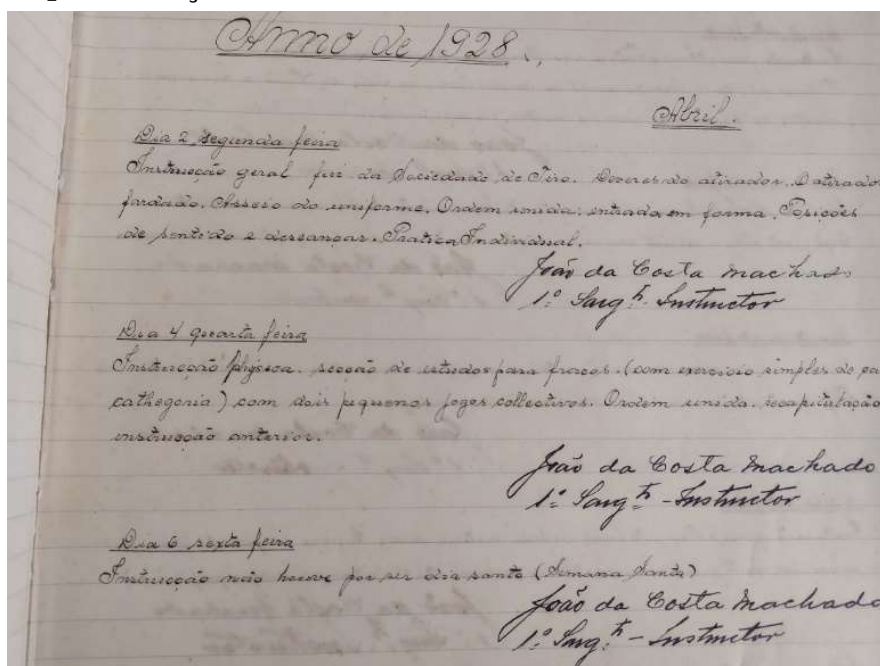 Anno de 1928.
Abril.
Dia 2 segunda feira
Instrucção geral fins da Sociedade de Tiro. Deveres do atirador. O atirador
fardado. Asseio do uniforme. Ordem unida: entrada em forma. Posições
de sentido e descançar. Pratica Individual.
João da Costa Machado
1º Sargto. Instructor
Dia 4 quarta feira
Instrucção physica. secção de estudos para fracos. (com exercicio simples de ca
cathegoria) com dois pequenos jogos collectivos. Ordem unida. recapitulação
instrucção anterior.
João da Costa Machado
1º Sargto - Instructor
Dia 6 sexta feira
Instrucção não houve por ser dia santo (Semana Santa)
João da Costa Machado
1º Sargto - Instructor